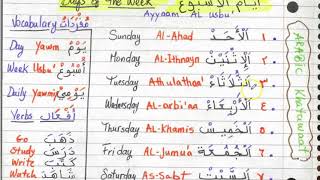 Days of The Week أيام الأسبوع
Ayyaam AL Usbu'
Vocabulary مُفْرَدَات
Day Yawm يَوْم
Week Usbu' أُسْبُوع
Daily Yawmi يَوْمِي
Verbs أَفْعَال
Go ذَهَبَ
Study دَرَسَ
Write كَتَبَ
Watch شَاهَدَ
Sunday Al-Ahad الْأَحَد ١.
Monday AL-Ithnayn الْإِثْنَيْن ٢.
Tuesday Ath-ulathaa' الثُّلَاثَاء ٣.
Wednesday AL-arbi'aa' الْأَرْبِعَاء ٤.
Thursday AL-Khamis الْخَمِيس ٥.
Friday AL-Jumu'a الْجُمُعَة ٦.
Saturday As-Sabt السَّبْت
ARABIC Khatawaat